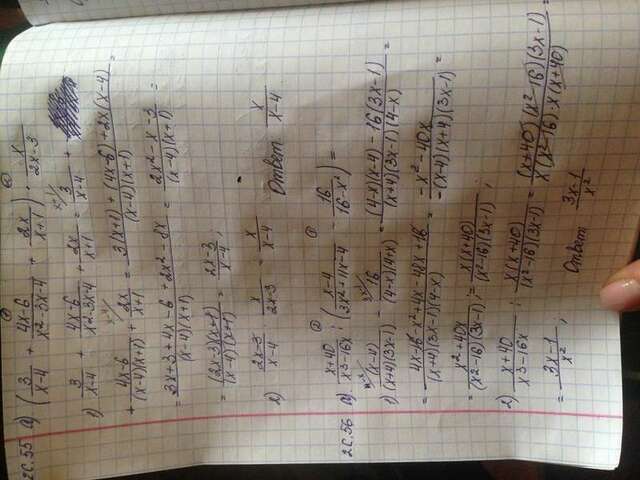 2C.55 а) (3/(x-4) + (4x-6)/(x²-3x-4) + 2x/(x+1)) · x/(2x-3)
1) 3/(x-4) + (4x-6)/(x²-3x-4) + 2x/(x+1) = 3/(x-4) +
+ (4x-6)/((x-4)(x+1)) + 2x/(x+1) = (3(x+1) + (4x-6) + 2x(x-4))/((x-4)(x+1)) =
= (3x+3+4x-6+2x²-8x)/((x-4)(x+1)) = (2x²-x-3)/((x-4)(x+1)) =
= ((2x-3)(x+1))/((x-4)(x+1)) = (2x-3)/(x-4);
2) (2x-3)/(x-4) · x/(2x-3) = x/(x-4) Ответ x/(x-4)
2C.56 а) (x+40)/(x³-16x) : ((x-4)/(3x²+11x-4) - 16/(16-x²)) =
1) (x-4)/((x+4)(3x-1)) - 16/((4-x)(4+x)) = ((4-x)(x-4) - 16(3x-1))/((x+4)(3x-1)(4-x)) =
= (4x-16-x²+4x-48x+16)/((x+4)(3x-1)(4-x)) = (-x²-40x)/(-(x-4)(x+4)(3x-1)) =
= (x²+40x)/((x²-16)(3x-1)) ; = (x(x+40))/((x²-16)(3x-1)) ;
2) (x+40)/(x³-16x) : (x(x+40))/((x²-16)(3x-1)) = ((x+40)(x²-16)(3x-1))/(x(x²-16)·x(x+40)) =
= (3x-1)/x² ; Ответ (3x-1)/x²